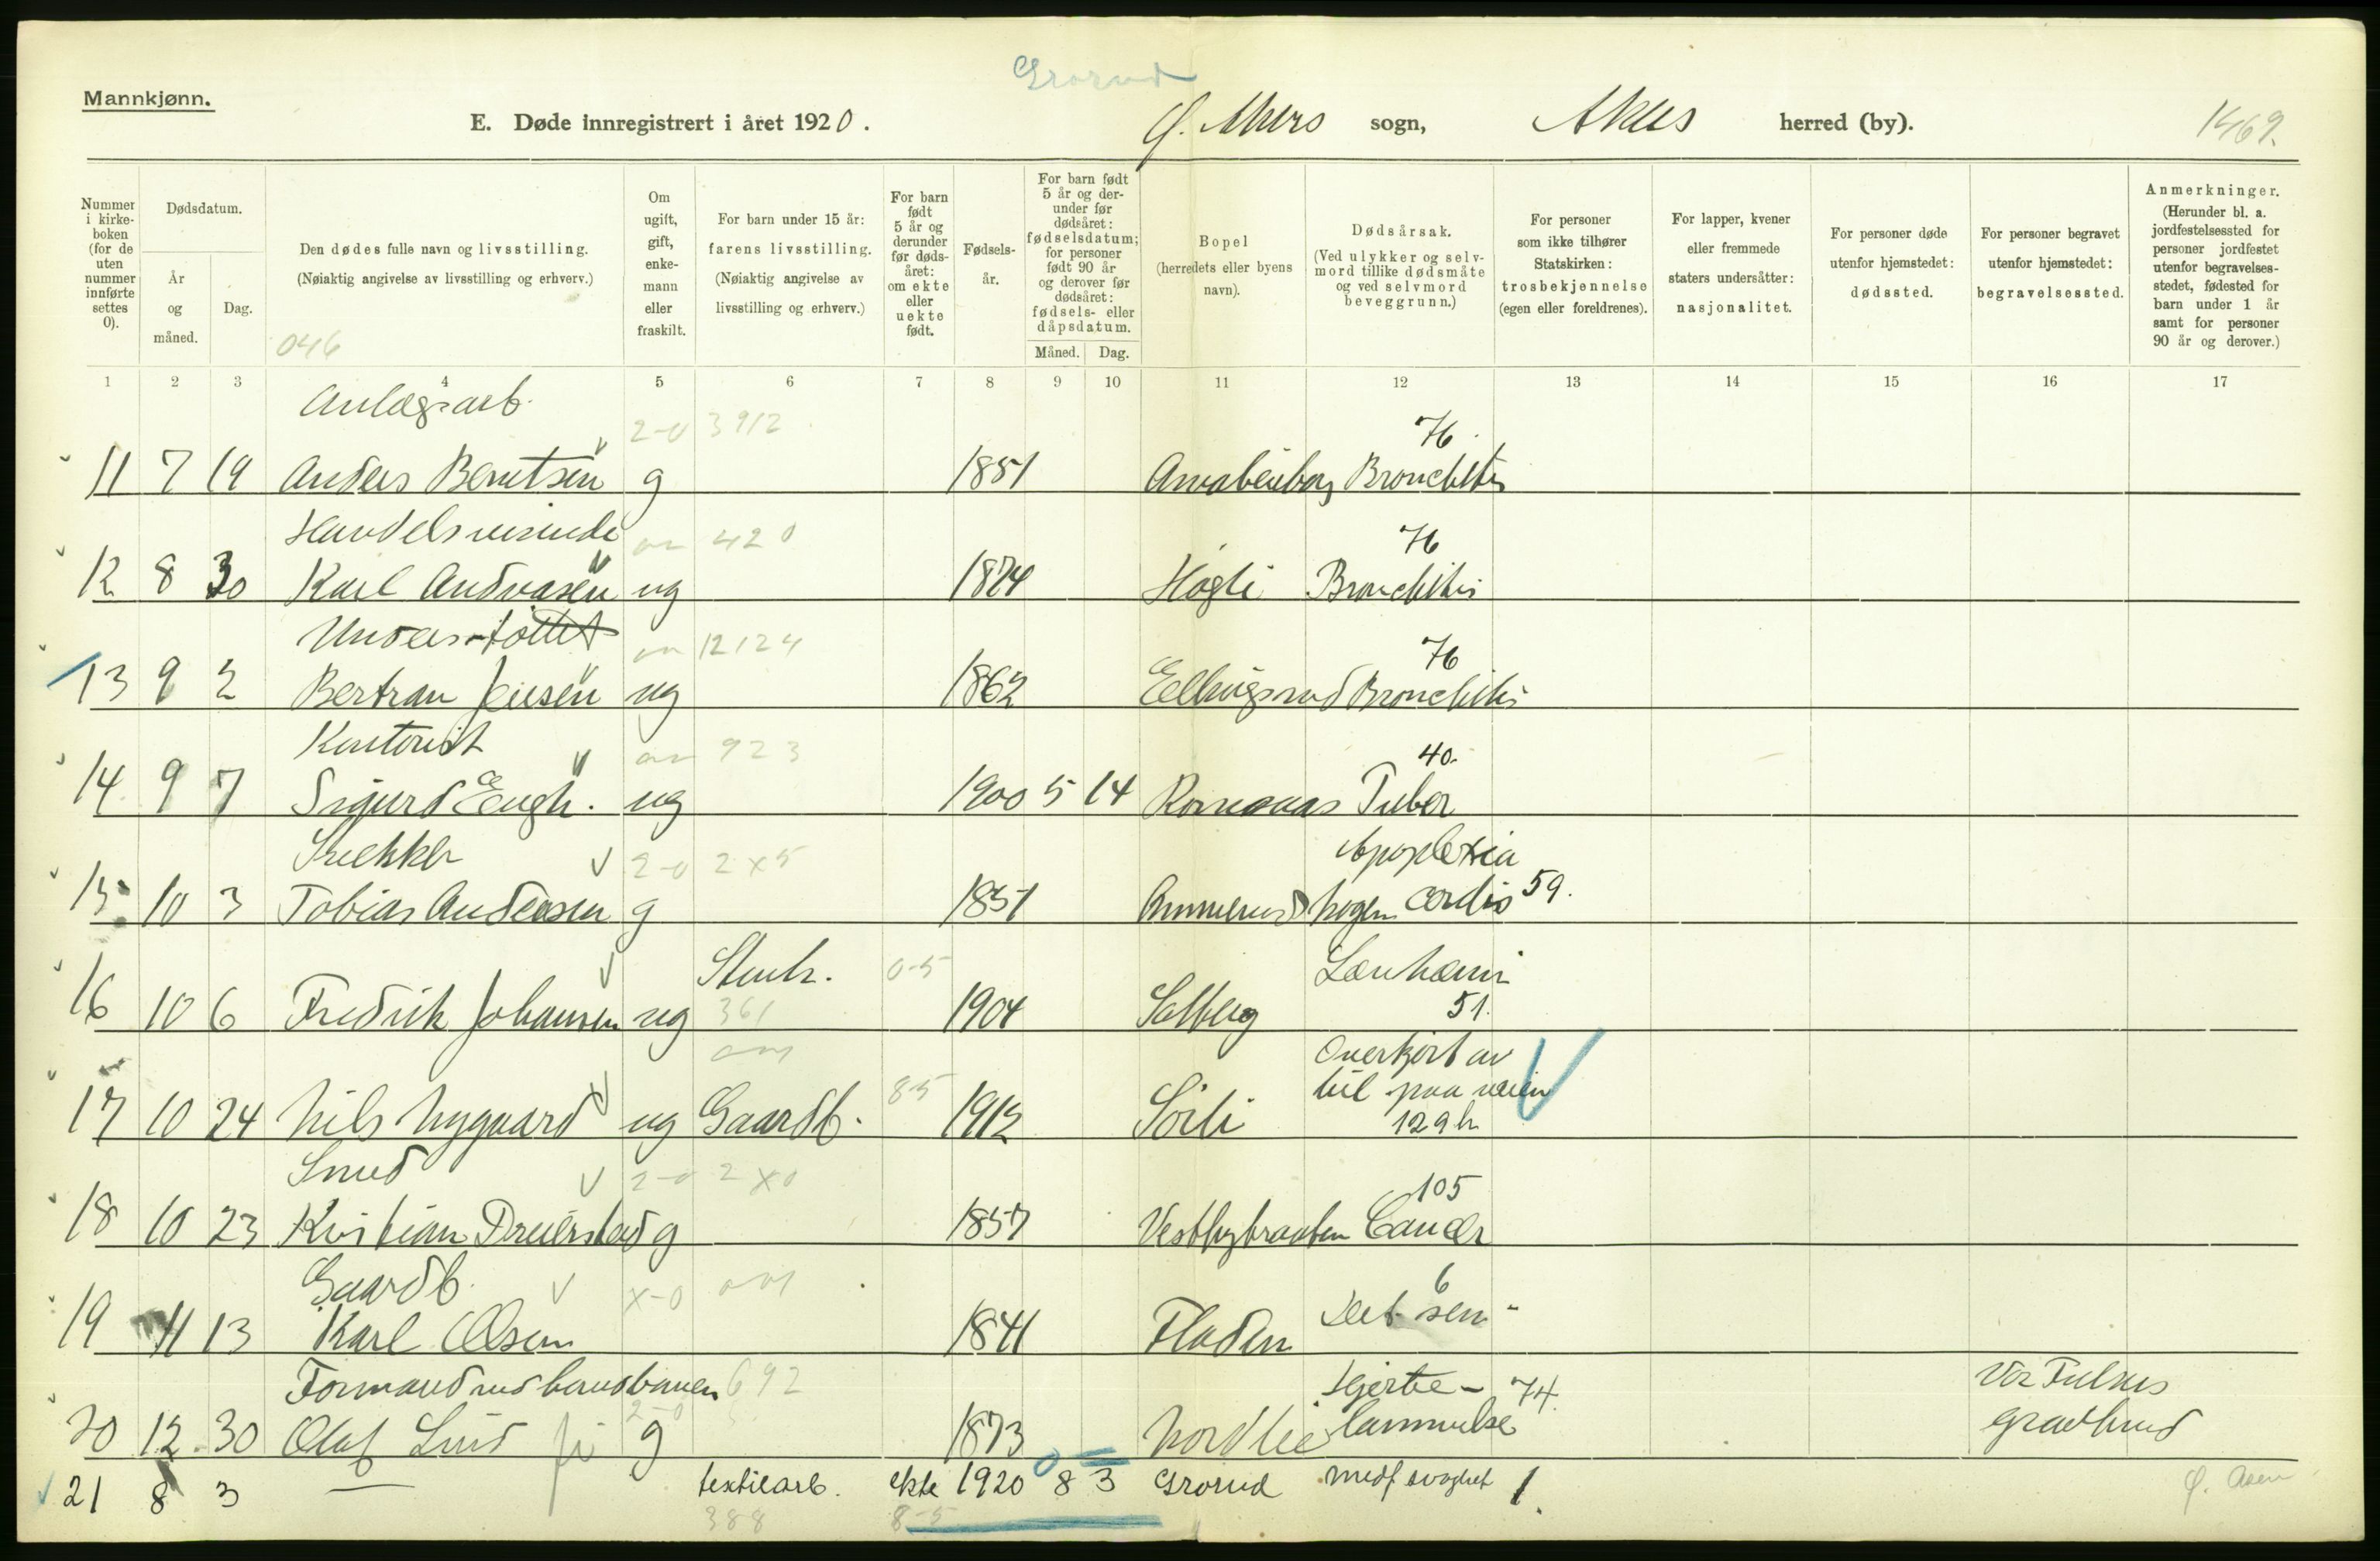 Grorud
Mannkjønn.
E. Døde innregistrert i året 1920. Ø. Akers sogn, Akers herred (by). 1469.
Nummer i kirkeboken (for de uten nummer innførte settes 0).
Dødsdatum.
År og måned.
Dag.
Den dødes fulle navn og livsstilling.
(Nøiaktig angivelse av livsstilling og erhverv.)
046
Om ugift, gift, enkemann eller fraskilt.
For barn under 15 år: farens livsstilling.
(Nøiaktig angivelse av livsstilling og erhverv.)
For barn født 5 år og derunder før dødsåret: om ekte eller uekte født.
Fødselsår.
For barn født 5 år og derunder før dødsåret: fødselsdatum; for personer født 90 år og derover før dødsåret: fødsels- eller dåpsdatum.
Måned. Dag.
Bopel (herredets eller byens navn).
Dødsårsak.
(Ved ulykker og selvmord tillike dødsmåte og ved selvmord beveggrunn.)
For personer som ikke tilhører Statskirken: trosbekjennelse (egen eller foreldrenes).
For lapper, kvener eller fremmede staters undersåtter: nasjonalitet.
For personer døde utenfor hjemstedet: dødssted.
For personer begravet utenfor hjemstedet: begravelsessted.
Anmerkninger.
(Herunder bl. a. jordfestelsessted for personer jordfestet utenfor begravelsesstedet, fødested for barn under 1 år samt for personer 90 år og derover.)
1 2 3 4 5 6 7 8 9 10 11 12 13 14 15 16 17
Anlægsarb.
2-0 3912 76
11 7 19 Anders Berntsen g 1851 Bronchitis
420 76
12 8 30 Karl Andreasen ug 1874 Høgli Bronchitis
Understøttet 12124 76
13 9 2 Bertran Jensen ug 1862 Ellingsrud Bronchitis
Kontorist 923 40.
14 9 7 Sigurd Engh. ug 1900 5 14 Romsaas Tuber
2-0 2x5 Apoplexia
15 10 3 Tobias Andersen g 1851 Ammerudhagen cordis 59.
Stenh. 0-5 Leukæmi
16 10 6 Fredrik Johansen ug 361 1904 Solberg 51.
Overkjørt av
8-5 bil paa veien
17 10 24 Nils Nygaard ug Gaardb. 1912 Sörli 129 h
Smed 2-0 2x0 105
18 10 23 Kristian g 1857 Vestbybraaten Cancer
Gaardb. x-0 6
19 11 13 Karl Olsen 1841 Fladen
Formand ved 692 Hjerte- 74. Vor Frelsers
20 12 30 Olaf Lund g 1873 Nordlie lammelse gravlund
21 8 3 — textilarb. ekte 1920 8 3 Grorud medf svaghet 1. Ø. Aker
388 8-5